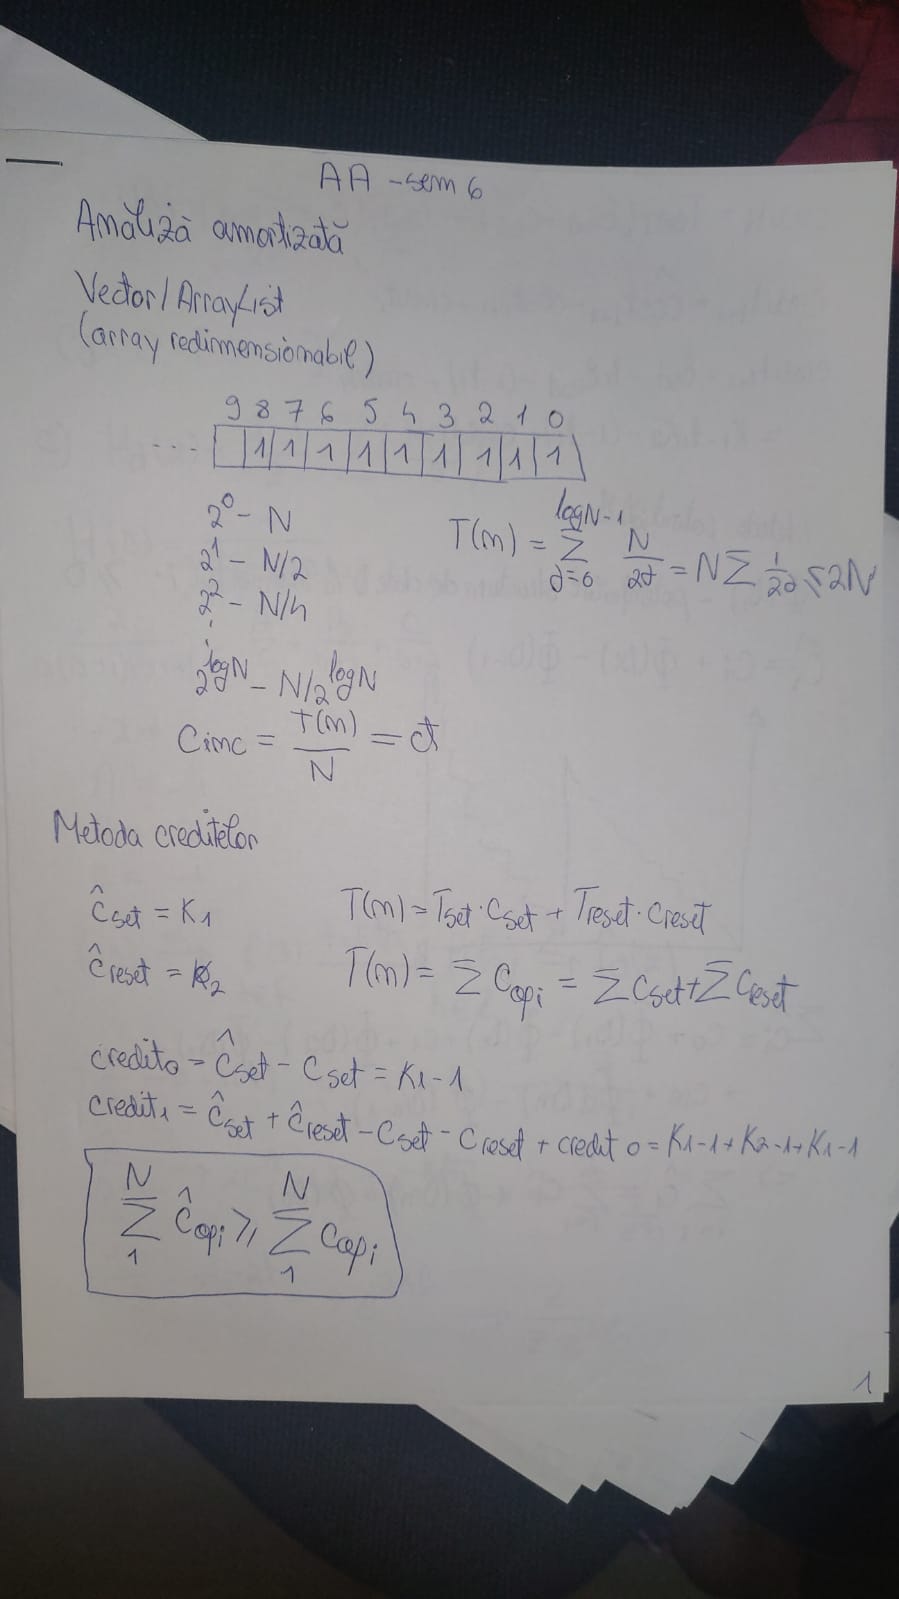 AA - sem 6
Analiză amortizată
Vector/ArrayList
(array redimensionabil)
9 8 7 6 5 4 3 2 1 0
... 1 1 1 1 1 1 1 1 1
2^0 - N
2^1 - N/2
2^2 - N/4
⋮
2^logN - N/2^logN
T(n) = Σ_{j=0}^{logN-1} N/2^j = N Σ 1/2^j ≤ 2N
Cinc = T(n)/N = ct
Metoda creditelor
ĉset = K1
T(n) = Tset · Cset + Treset · Creset
ĉreset = K2
T(n) = Σ Copi = Σ Cset + Σ Creset
credit0 = ĉset - Cset = K1 - 1
credit1 = ĉset + ĉreset - Cset - Creset + credit0 = K1-1+K2-1+K1-1
Σ_1^N ĉopi ≥ Σ_1^N Copi
1